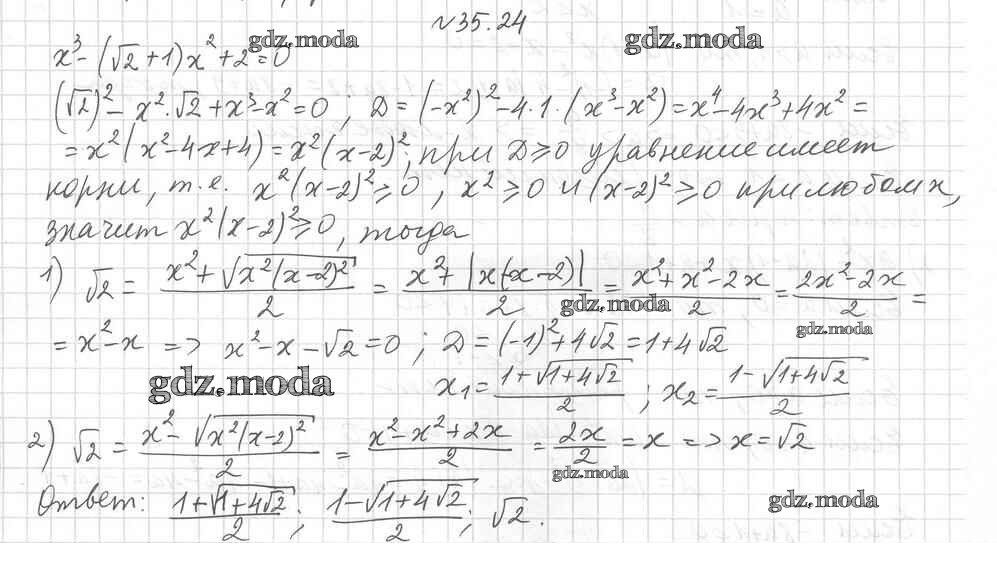 №35.24
x³ - (√2 + 1)x² + 2 = 0 gdz.moda gdz.moda
(√2)² - x²·√2 + x³ - x² = 0 ; D = (-x²)² - 4·1·(x³ - x²) = x⁴ - 4x³ + 4x² =
= x²(x² - 4x + 4) = x²(x - 2)², при D ≥ 0 уравнение имеет
корни, т.е. x²(x - 2)² ≥ 0 , x² ≥ 0 и (x - 2)² ≥ 0 при любом x,
значит x²(x - 2)² ≥ 0, тогда
1) √2 = (x² + √(x²(x - 2)²))/2 = (x² + |x(x - 2)|)/2 = (x² + x² - 2x)/2 = (2x² - 2x)/2 =
gdz.moda gdz.moda
= x² - x => x² - x - √2 = 0 ; D = (-1)² + 4√2 = 1 + 4√2
gdz.moda x₁ = (1 + √(1 + 4√2))/2 ; x₂ = (1 - √(1 + 4√2))/2
2) √2 = (x² - √(x²(x - 2)²))/2 = (x² - x² + 2x)/2 = 2x/2 = x => x = √2
gdz.moda
Ответ: (1 + √(1 + 4√2))/2 ; (1 - √(1 + 4√2))/2 ; √2 .
gdz.moda